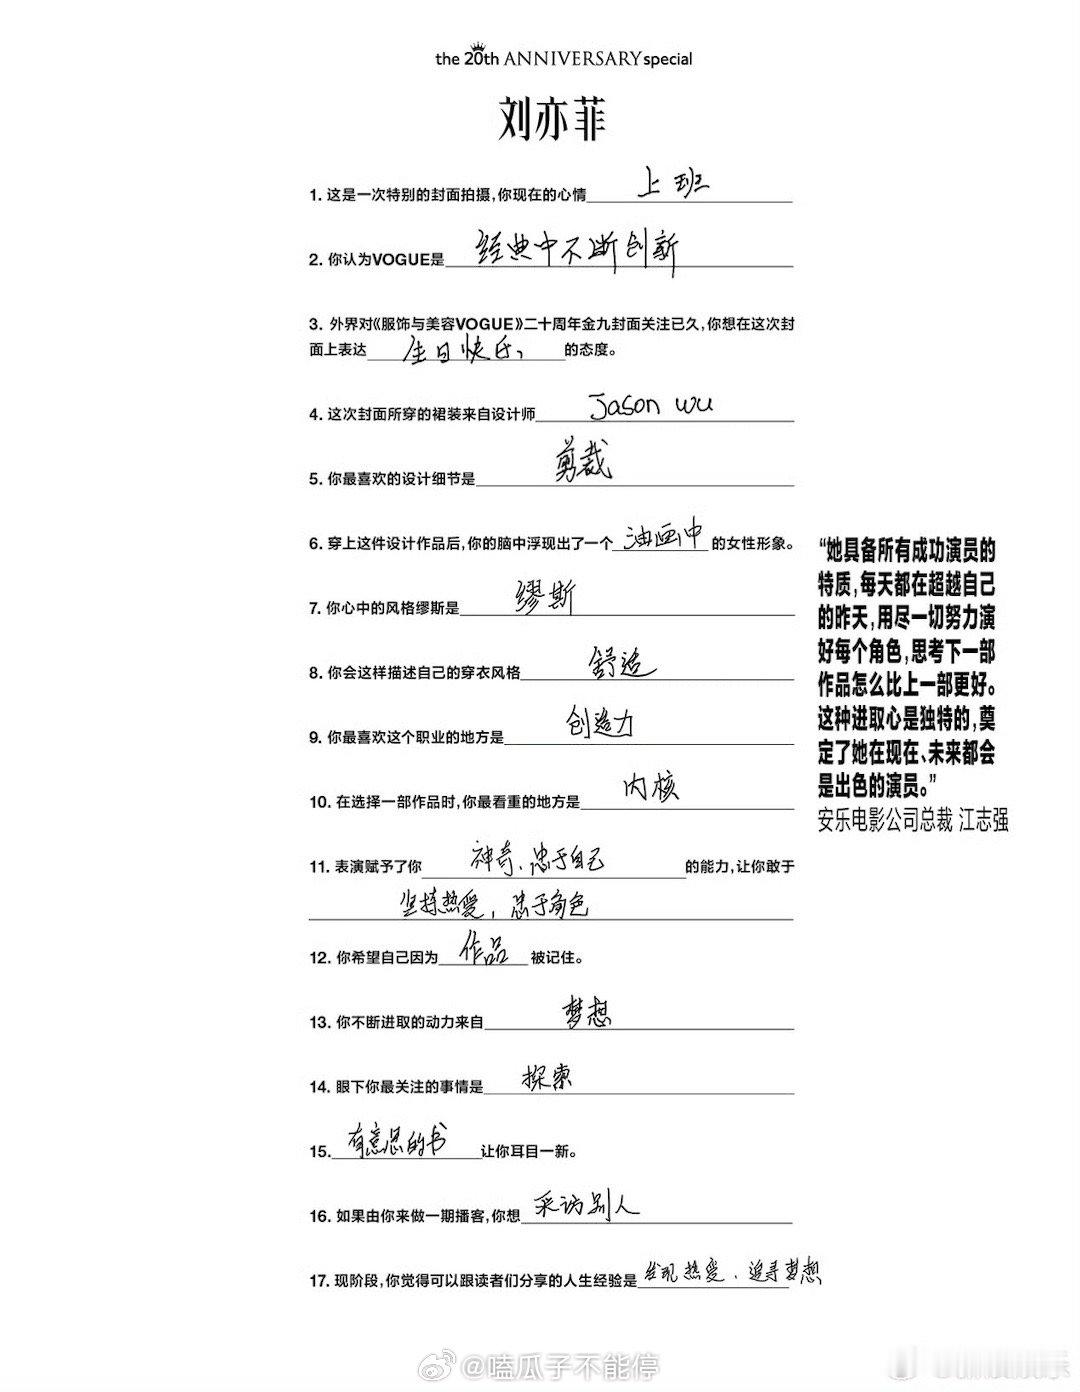 the 20th ANNIVERSARY special
刘亦菲
1. 这是一次特别的封面拍摄,你现在的心情 上班
2. 你认为VOGUE是 经典中不断创新
3. 外界对《服饰与美容VOGUE》二十周年金九封面关注已久,你想在这次封
面上表达 生日快乐, 的态度。
4. 这次封面所穿的裙装来自设计师 Jason wu
5. 你最喜欢的设计细节是 剪裁
6. 穿上这件设计作品后,你的脑中浮现出了一个 油画中 的女性形象。
7. 你心中的风格缪斯是 缪斯
8. 你会这样描述自己的穿衣风格 舒适
9. 你最喜欢这个职业的地方是 创造力
10. 在选择一部作品时,你最看重的地方是 内核
11. 表演赋予了你 神奇、忠于自己 的能力,让你敢于
坚持热爱,忠于角色
12. 你希望自己因为 作品 被记住。
13. 你不断进取的动力来自 梦想
14. 眼下你最关注的事情是 探索
15. 有意思的书 让你耳目一新。
16. 如果由你来做一期播客,你想 采访别人
17. 现阶段,你觉得可以跟读者们分享的人生经验是 发现热爱、追寻梦想
“她具备所有成功演员的
特质,每天都在超越自己
的昨天,用尽一切努力演
好每个角色,思考下一部
作品怎么比上一部更好。
这种进取心是独特的,奠
定了她在现在、未来都会
是出色的演员。”
安乐电影公司总裁 江志强
@嗑瓜子不能停